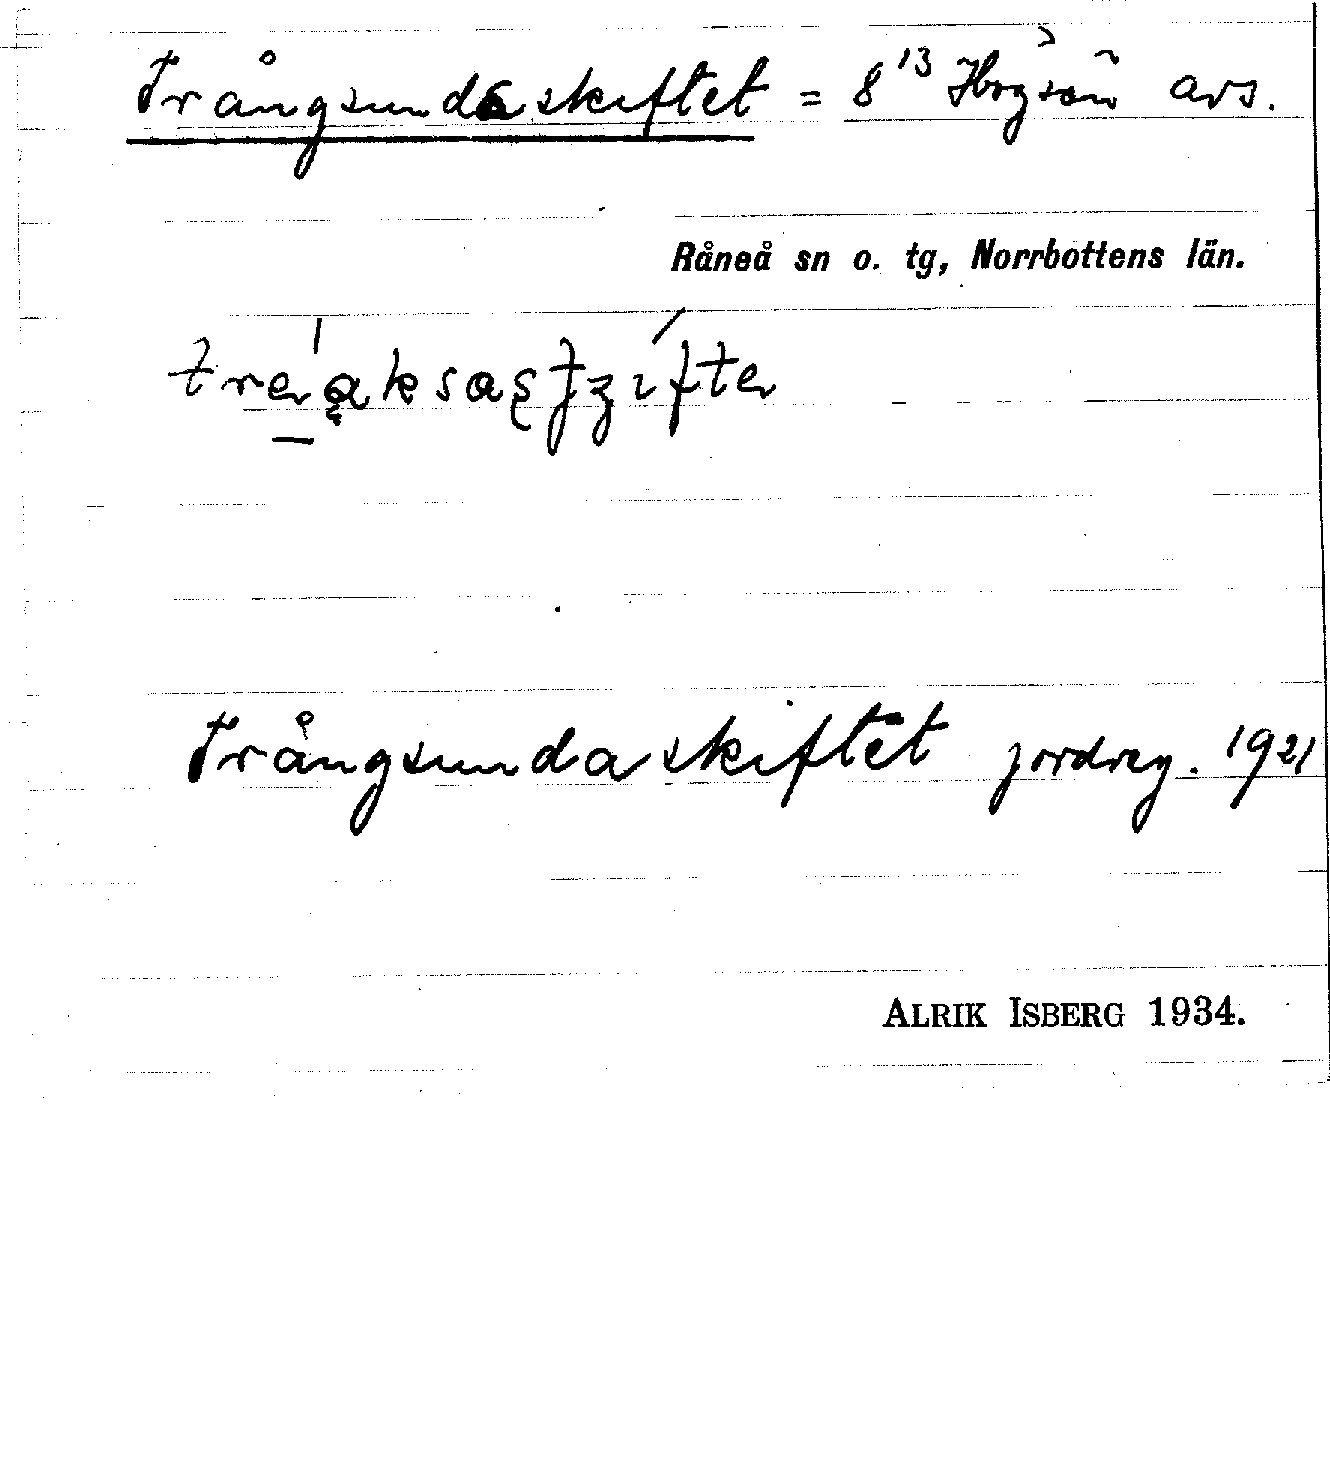 Trångsundaskiftet = 8¹³ avs.
Råneå sn o. tg, Norrbottens län.
Trångsundaskiftet jordreg. 1921
ALRIK ISBERG 1934.